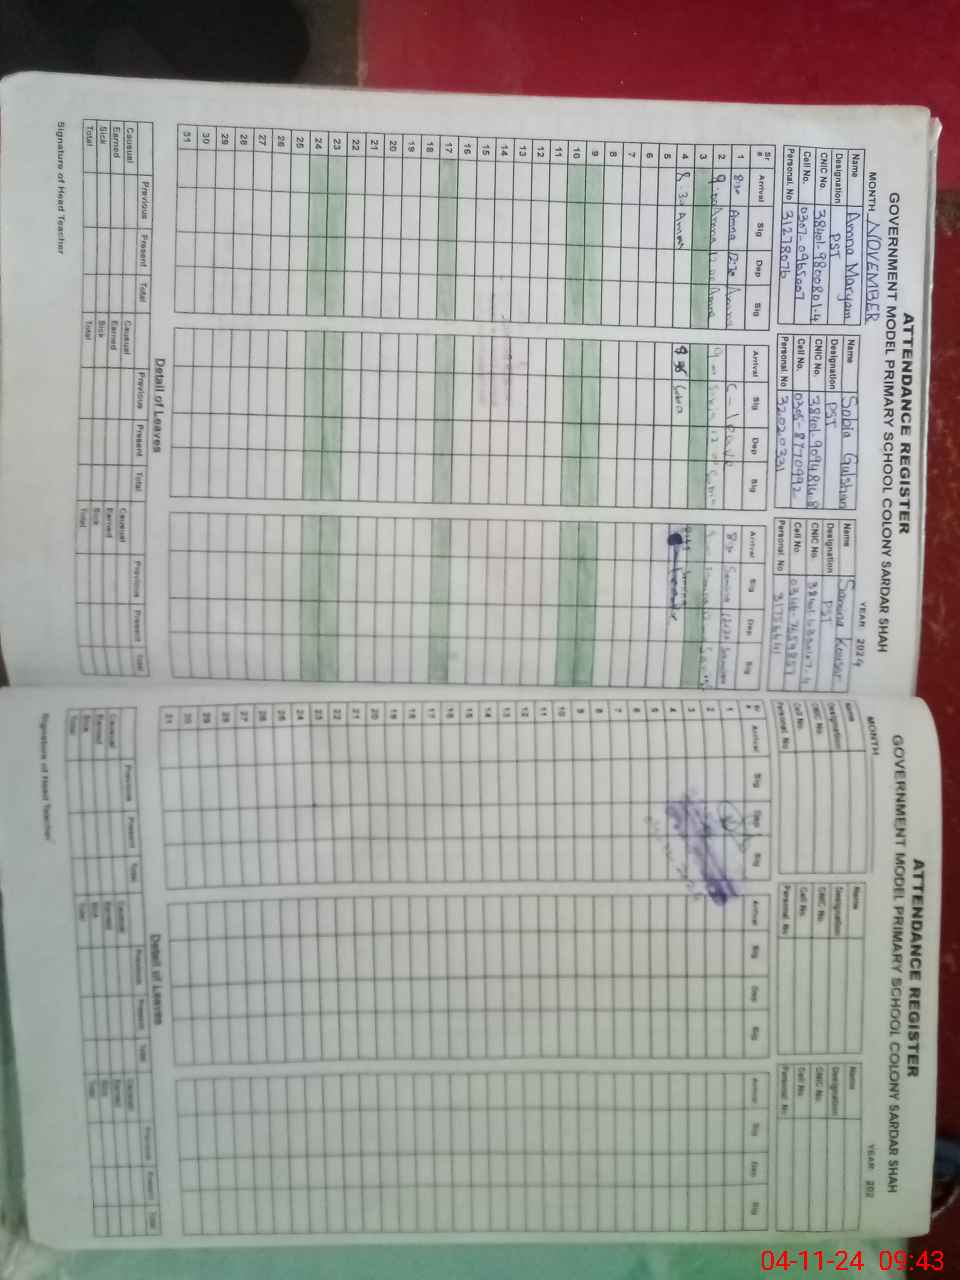 ATTENDANCE REGISTER
GOVERNMENT MODEL PRIMARY SCHOOL COLONY SARDAR SHAH
MONTH NOVEMBER YEAR 2024
Name Amna Maryam
Designation PST
CNIC No.
Cell No. 0307-0965007
Personal. No 31278076
Name Sobia Gulshan
Designation PST
CNIC No.
Cell No. 0305-8770992
Personal. No 32020321
Name Samina Kousar
Designation PST
CNIC No.
Cell No.
Personal. No
Sr # Arrival Sig Dep Sig Arrival Sig Dep Sig Arrival Sig Dep Sig
1 8:30 Amna 12:30 Amna C-leave 8:30 Samina 12:30 Samina
2 9:00 Amna 12:00 Amna 9:00 Sobia 12:00 Sobia
3
4 8:30 Amna 8:30 Sobia
5
6
7
8
9
10
11
12
13
14
15
16
17
18
19
20
21
22
23
24
25
26
27
28
29
30
31
Detail of Leaves
Previous Present Total Previous Present Total Previous Present Total
Causual Causual Causual
Earned Earned Earned
Sick Sick Sick
Total Total Total
Signature of Head Teacher
ATTENDANCE REGISTER
GOVERNMENT MODEL PRIMARY SCHOOL COLONY SARDAR SHAH
MONTH YEAR 202
Name Name Name
Designation Designation Designation
CNIC No. CNIC No. CNIC No.
Cell No. Cell No. Cell No.
Personal. No Personal. No Personal. No
Sr # Arrival Sig Dep Sig Arrival Sig Dep Sig Arrival Sig Dep Sig
1
2
3
4
5
6
7
8
9
10
11
12
13
14
15
16
17
18
19
20
21
22
23
24
25
26
27
28
29
30
31
Detail of Leaves
Previous Present Total Previous Present Total Previous Present Total
Causual Causual Causual
Earned Earned Earned
Sick Sick Sick
Total Total Total
Signature of Head Teacher
04-11-24 09:43